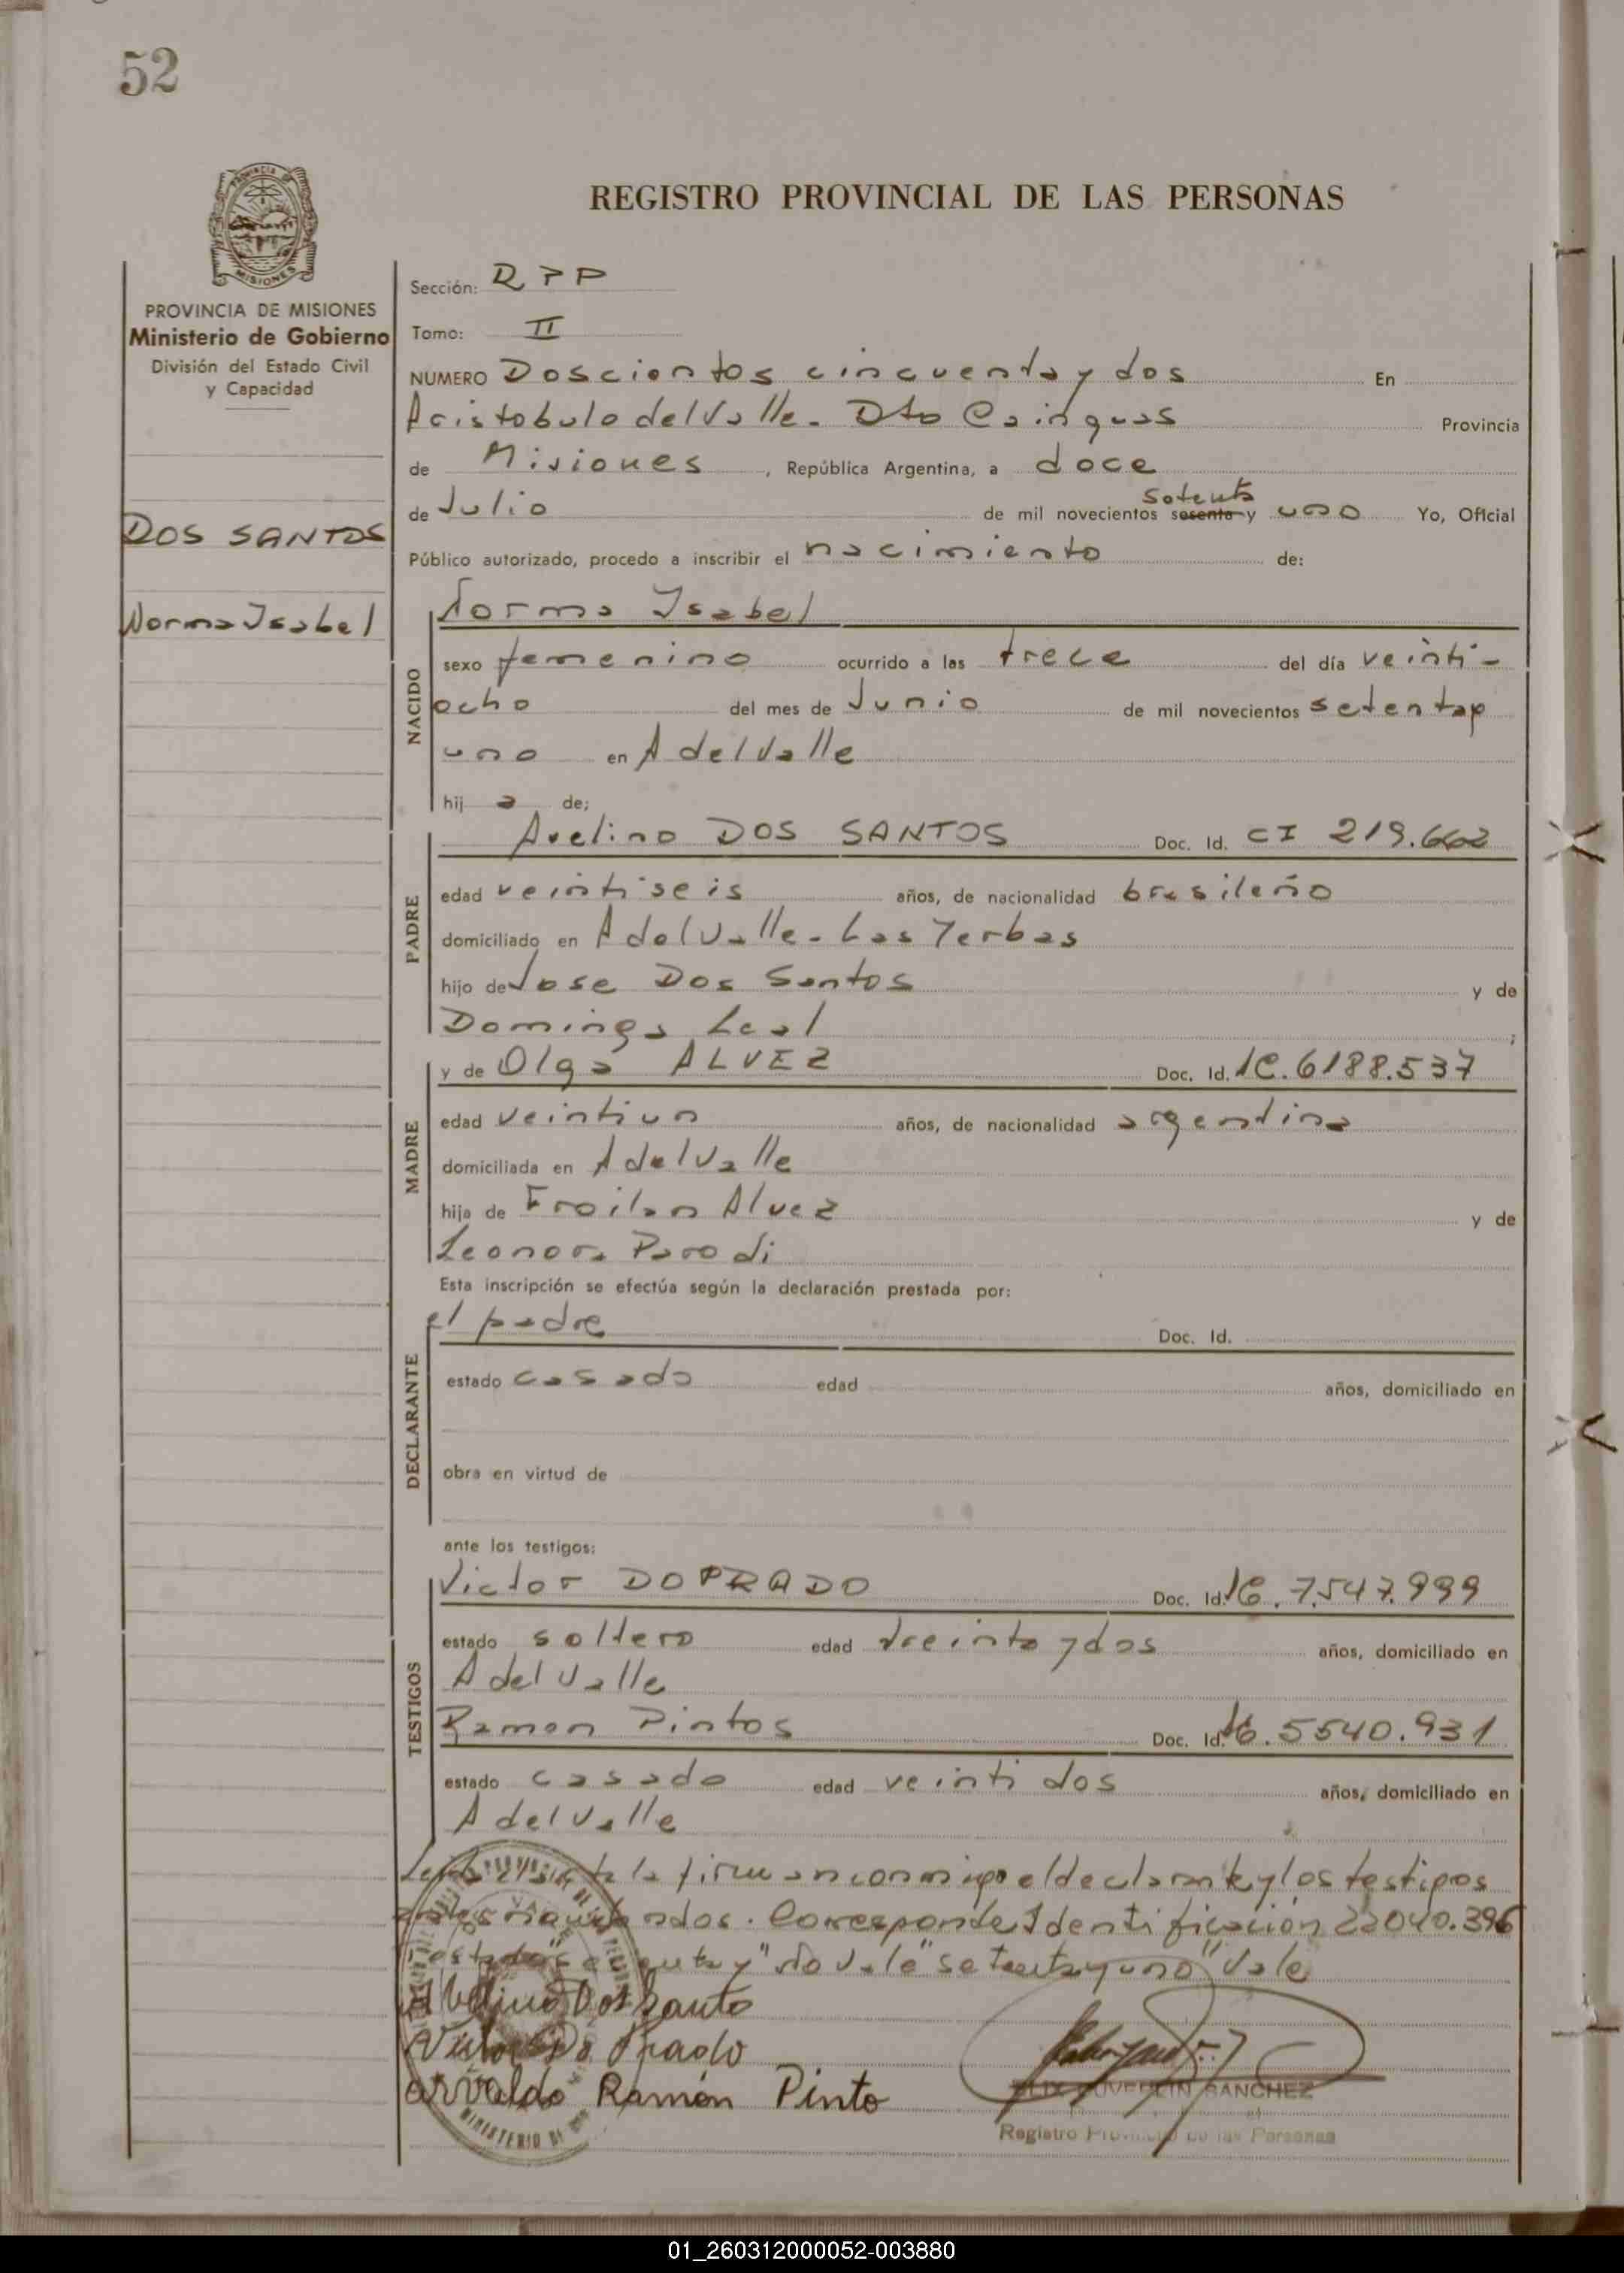 52
PROVINCIA DE
MISIONES
PROVINCIA DE MISIONES
Ministerio de Gobierno
División del Estado Civil
y Capacidad
DOS SANTOS
Norma Isabel
REGISTRO PROVINCIAL DE LAS PERSONAS
Sección: RPP
Tomo: II
NUMERO Doscientos cincuenta y dos En
Aristobulo del Valle. Dto Cainguas Provincia
de Misiones, República Argentina, a doce
setenta
de Julio de mil novecientos sesenta y uno Yo, Oficial
Público autorizado, procedo a inscribir el nacimiento de:
NACIDO
Norma Isabel
sexo femenino ocurrido a las trece del día veinti-
ocho del mes de Junio de mil novecientos setenta y
uno en A del Valle
hij a de;
PADRE
Avelino DOS SANTOS Doc. Id. CI 219.662
edad veintiseis años, de nacionalidad brasileño
domiciliado en A del Valle. Las Yerbas
hijo de Jose Dos Santos y de
Dominga Leal ;
MADRE
y de Olga ALVEZ Doc. Id. 6188.537
edad veintiun años, de nacionalidad argentina
domiciliada en A del Valle
hija de Froilan Alvez y de
Leonora Parodi
Esta inscripción se efectúa según la declaración prestada por:
DECLARANTE
el padre Doc. Id.
estado casado edad años, domiciliado en
obra en virtud de
ante los testigos:
TESTIGOS
Victor DOPRADO Doc. Id. 7.547.999
estado soltero edad treinta y dos años, domiciliado en
A del Valle
Ramon Pintos Doc. Id. 5540.931
estado casado edad veinti dos años, domiciliado en
A del Valle
la firman conmigo el declarante y los testigos
Corresponde Identificación 22040.396
y" No Vale "setenta y uno" Vale
Dos Santo
Victor Do Prado
Arvaldo Ramón Pinto
SANCHEZ
Registro Provincial de las Personas
MINISTERIO DE
01_260312000052-003880